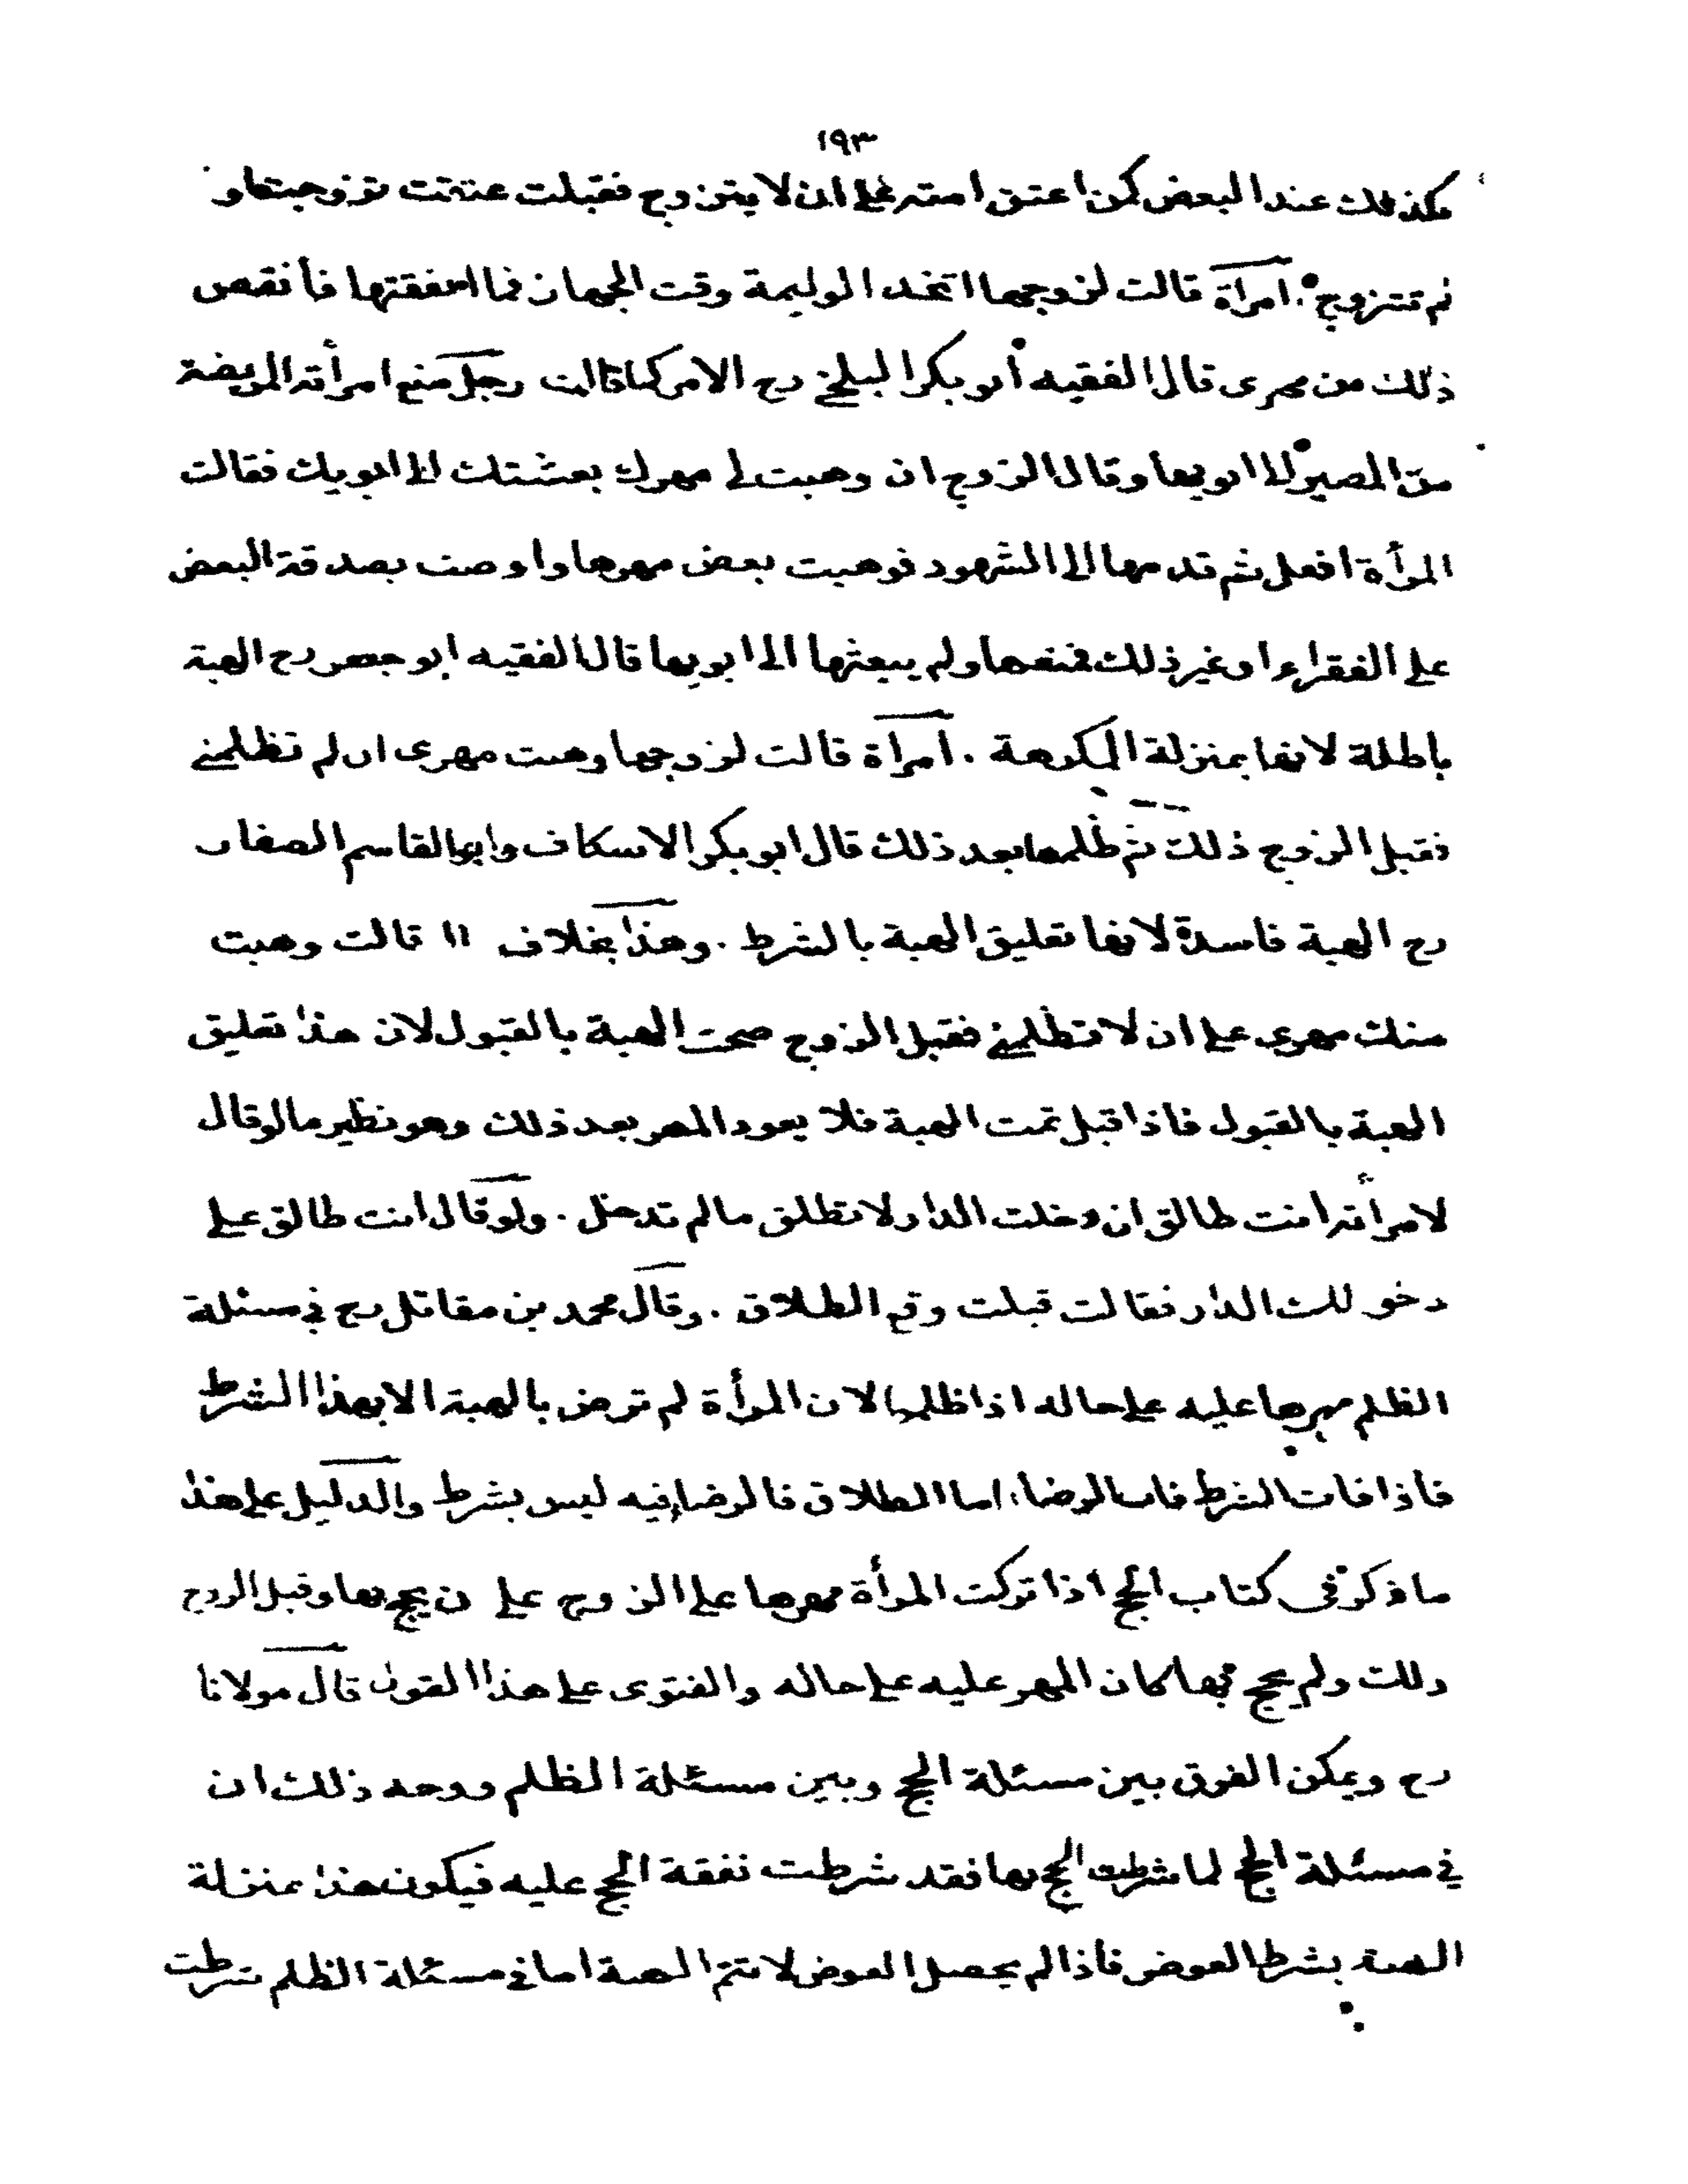 ١٩٣
فكذلك عند البعض كمن اعتق امته على ان لا يتزوج فقبلت عتقت تزوجت او
لم تتزوج . امرأة قالت لزوجها اتخذ الوليمة وقت الجهاز فما انفقتها فأنقص
ذلك من مهرى قال الفقيه أبو بكر البلخى رح الامر كما قالت رجل منع امرأته المريضة
من المصير الى ابويها وقال الزوج ان وهبت لى مهرك بعثتك الى ابويك فقالت
المرأة افعل ثم قدمها الى الشهود فوهبت بعض مهرها واوصت بصدقة البعض
على الفقراء او غير ذلك فمنعها ولم يبعثها الى ابويها قال الفقيه ابو جعفر رح الهبة
باطلة لانها بمنزلة المكرهة . امرأة قالت لزوجها وهبت مهرى ان لم تظلمنى
فقبل الزوج ذلك ثم ظلمها بعد ذلك قال ابو بكر الاسكاف وابو القاسم الصفار
رح الهبة فاسدة لانها تعليق الهبة بالشرط . وهذا بخلاف اا قالت وهبت
منك مهرى على ان لا تظلمنى فقبل الزوج صحت الهبة بالقبول لان هذا تعليق
الهبة بالقبول فاذا قبل تمت الهبة فلا يعود المهر بعد ذلك وهو نظير مالو قال
لامرأته انت طالق ان دخلت الدار لا تطلق مالم تدخل . ولو قال انت طالق على
دخولك الدار فقالت قبلت وقع الطلاق . وقال محمد بن مقاتل رح فى مسئلة
الظلم مهرها عليه على حاله اذا ظلمها لان المرأة لم ترض بالهبة الا بهذا الشرط
فاذا فات الشرط فات الرضا، اما الطلاق فالرضا فيه ليس بشرط والدليل على هذا
ما ذكر فى كتاب الحج اذا تركت المرأة مهرها على الزوج على ن يحج بها وقبل الزوج
ذلك ولم يحج بها كان المهر عليه على حاله والفتوى على هذا القول قال مولانا
رح ويمكن الفرق بين مسئلة الحج وبين مسئلة الظلم ووجه ذلك ان
فى مسئلة الحج لما شرطت الحج بها فقد شرطت نفقة الحج عليه فيكون هذا بمنزلة
الهبة بشرط العوض فاذا لم يحصل العوض لا تتم الهبة اما فى مسئلة الظلم شرطت